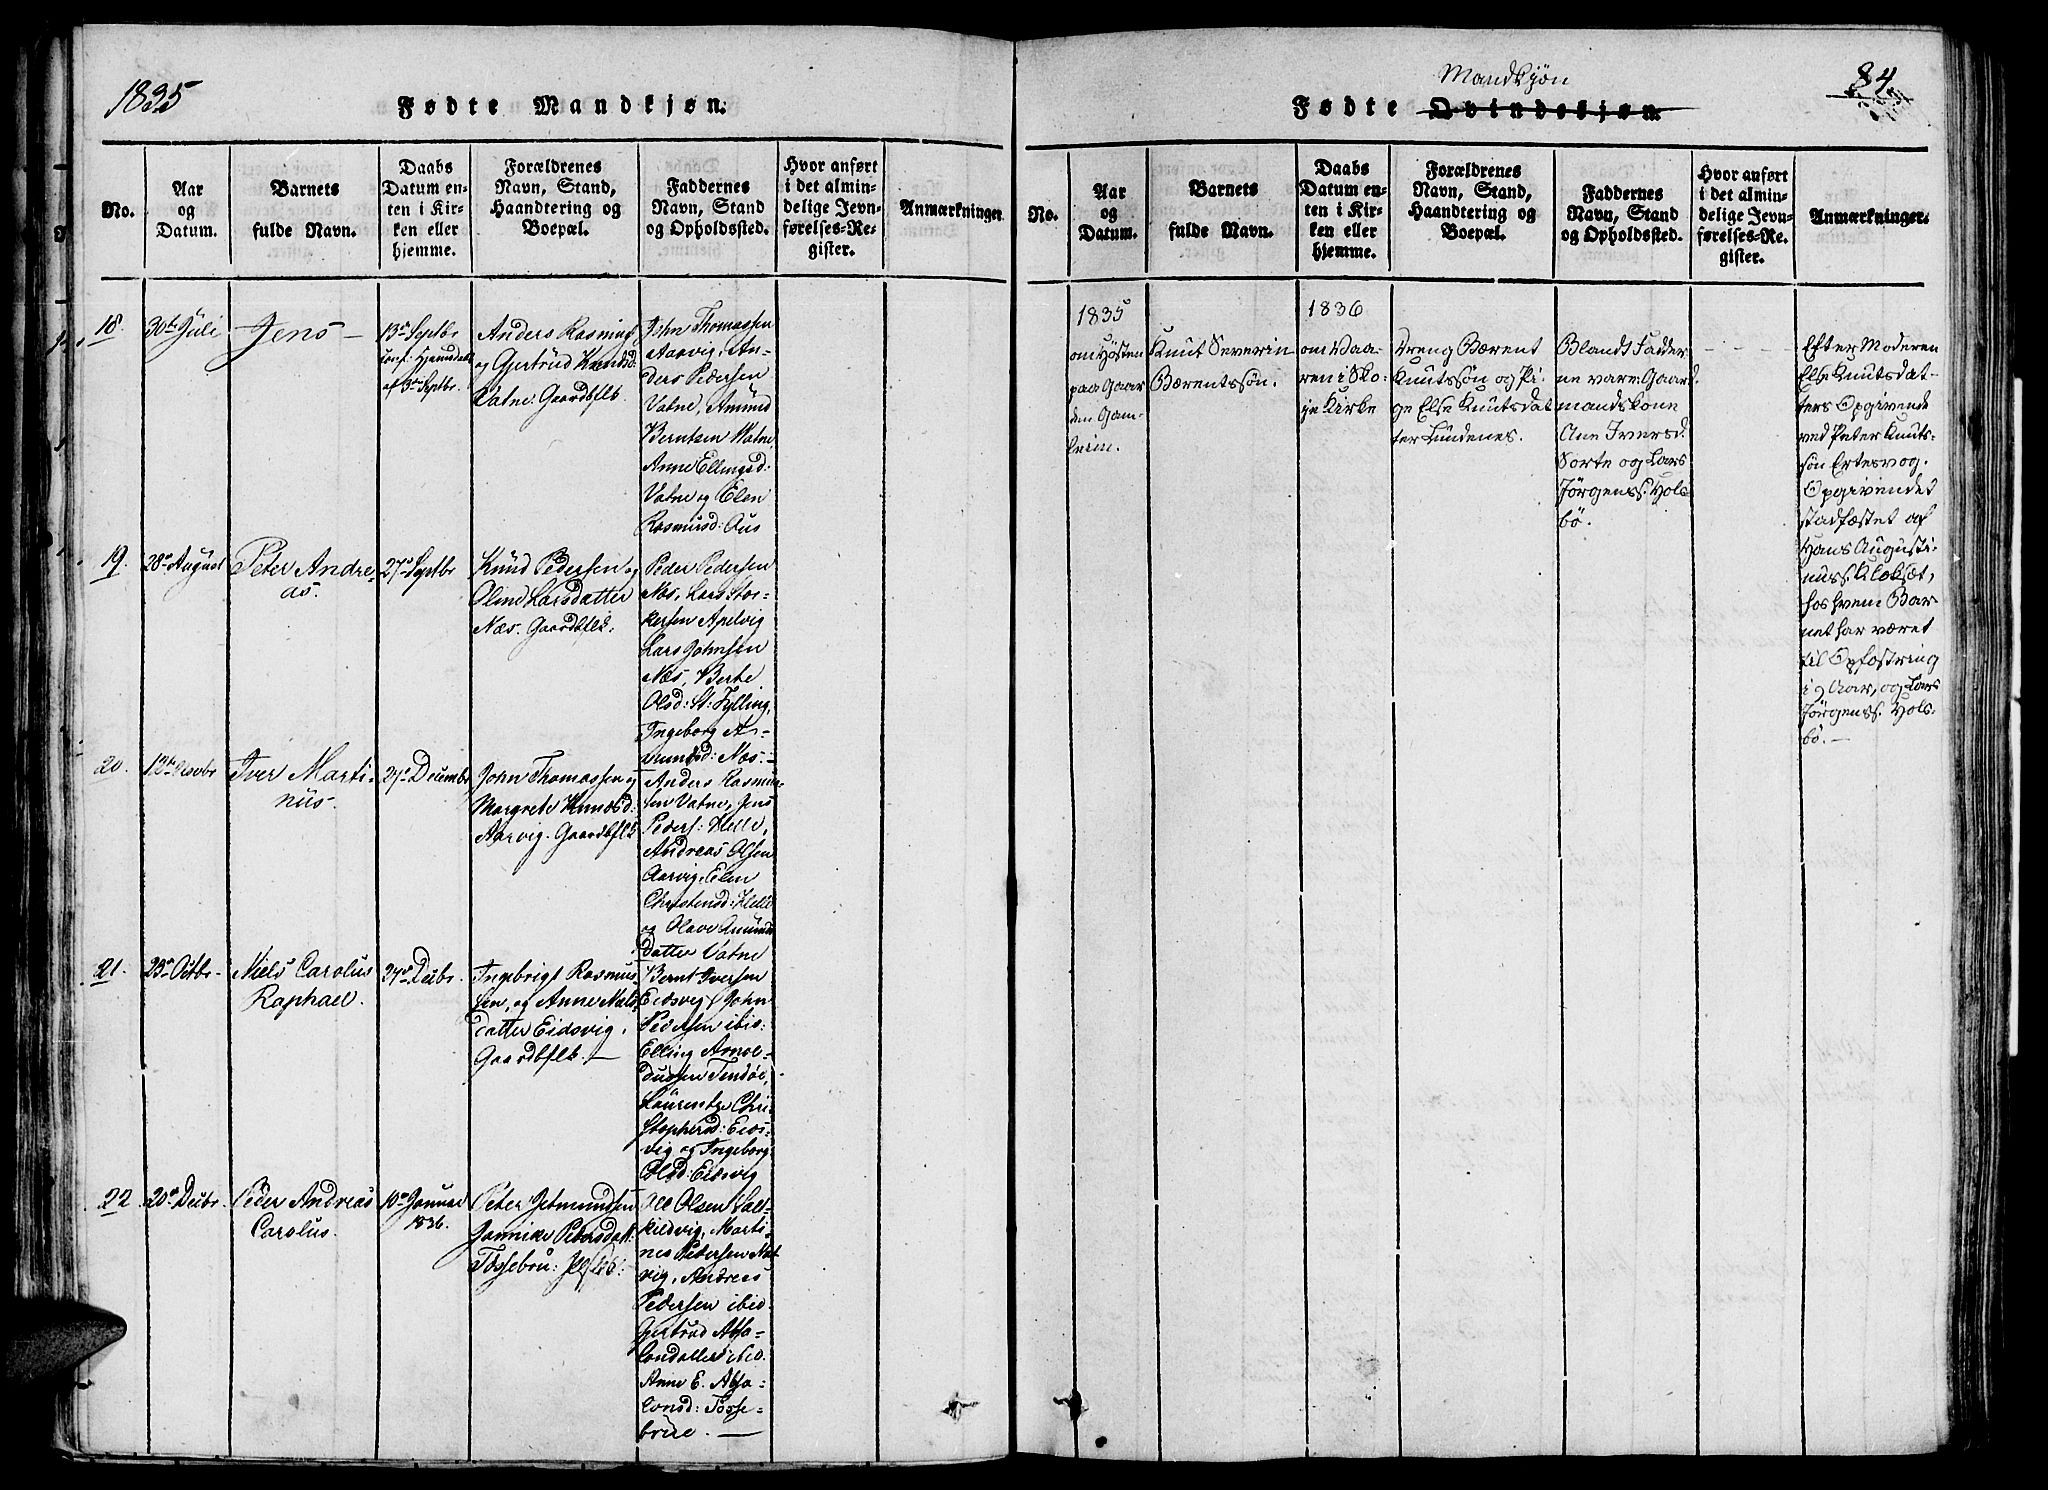 1835
Fødte Mandkjøn.
No.
Aar
og
Datum.
Barnets
fulde Navn.
Daabs
Datum en-
ten i Kir-
ken eller
hjemme.
Forældrenes
Navn, Stand,
Haandtering og
Boepæl.
Faddernes
Navn, Stand
og Opholdssted.
Hvor anført
i det almin-
delige Jevn-
førelses-Re-
gister.
Anmærkninger
18.
30te Juli
Jens
13de Septbr
conf: Hjemdøbt
af 3de Septbr.
Anders Rasmuss
og Gjertrud Knudsd:
Vatne. Gaardbflk.
John Thomassen
Aarvig, An-
ders Pedersen
Vatne, Amund
Berntsen Vatne
Anne Ellingsd:
Vatne og Elen
Rasmusd: Aus
19.
28de August
Peter Andre-
as.
27de Septbr
Knud Pedersen og
Oline Larsdatter
Næs. Gaardbflk:
Peder Pedersen
Næs, Lars Stor-
kersen Apelvig
Lars Johnsen
Næs, Berte
Olsd: St: Fylling,
Ingeborg As-
mundsd: Næs.
20.
Iver Marti-
nus.
27de Decembr
John Thomassen og
Margrete Knudsd:
Aarvig. Gaardbflk
Anders Rasmus-
sen Vatne, Jens
Peders: Helle,
Andreas Olsen
Aarvig, Elen
Christensd: Helle
og Olave Amunds
datter Vatne
21.
23de Octbr.
Niels Carolus
Raphael.
27de Decbr.
Ingebrigt Rasmus-
sen, og Anne Niels
datter Eidsvig.
Gaardbflk.
Bernt Iversen
Eidsvig, John
Pedersen ibid:
Elling Arnol-
dussen Tendøe,
Laurentze Chri-
stophersd: Eids-
vig og Ingeborg
Olsd: Eidsvig
22
20de Decbr.
Peder Andreas
Carolus.
10de Januar
1836.
Peter Jetmundsen
Jannike Petersdatt:
Tossebru:
Ole Olsen
Marti-
nus Pedersen
vig, Andreas
Pedersen ibid.
Gjertrud Absa-
londatter ibid.
Anne E. Absa-
lonsd: Tosse-
brue.
Mandkjøn
84
Fødte Qvindeskjøn.
No.
Aar
og
Datum.
Barnets
fulde Navn.
Daabs
Datum en-
ten i Kir-
ken eller
hjemme.
Forældrenes
Navn, Stand,
Haandtering og
Boepæl.
Faddernes
Navn, Stand
og Opholdssted.
Hvor anført
i det almin-
delige Jevn-
førelses-Re-
gister.
Anmærkninger.
1835
om Høsten
paa Gaar
den Gam-
leiin.
Knut Severin
Bærentssøn.
1836
om Vaa-
ren i Sko-
je Kirke
Dreng Bærent
Knutssøn og Pi-
ge Else Knutsdat
ter Lundenes.
Blandt Fadder
ne vare: Gaard
mandskone
Ane Iversd.
Sorte og Lars
Jørgenss. Hols-
bø.
Efter Moderen
Else Knutsdat-
ters Opgivende
ved Peter Knuts-
søn Ertesvog.
Opgivendet
stadfæstet af
Hans Augusti-
nuss. Kloksæt,
hos hvem Bar-
net har været
til Opfostring
i 9 Aar, og Lars
Jørgenss. Hols-
bø.